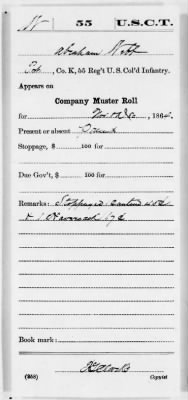 W | 55 | U.S.C.T.
Abraham Webb
Pvt, Co. K, 55 Reg't U. S. Col'd Infantry.
Appears on
Company Muster Roll
for Nov &amp; Dec, 1864.
Present or absent Present
Stoppage, $ 100 for
Due Gov't, $ 100 for
Remarks: Stoppage: Canteen
&amp; 1 Haversack
Book mark:
(358) Copyist